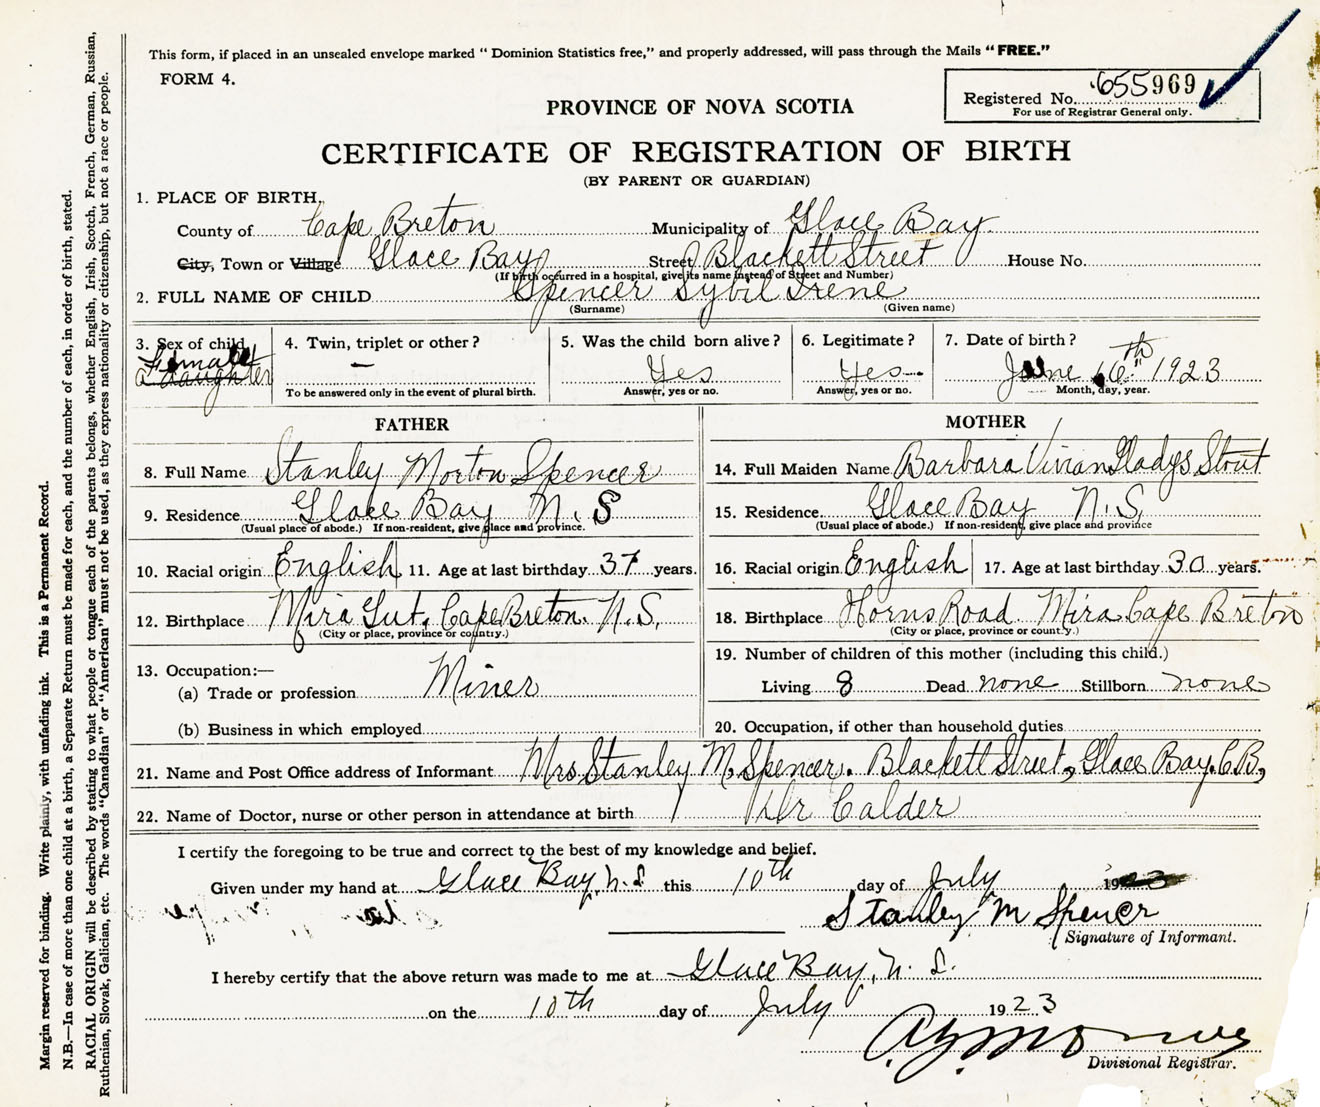 This form, if placed in an unsealed envelope marked “ Dominion Statistics free,” and properly addressed, will pass through the Mails “ FREE.”
FORM 4.
Registered No. 655969
For use of Registrar General only.
PROVINCE OF NOVA SCOTIA
CERTIFICATE OF REGISTRATION OF BIRTH
(BY PARENT OR GUARDIAN)
1. PLACE OF BIRTH.
County of Cape Breton Municipality of Glace Bay.
City, Town or Village Glace Bay Street Blackett Street House No.
(If birth occurred in a hospital, give its name instead of Street and Number)
2. FULL NAME OF CHILD Spencer Sybil Irene
(Surname) (Given name)
3. Sex of child Female a daughter
4. Twin, triplet or other? —
To be answered only in the event of plural birth.
5. Was the child born alive? Yes
Answer, yes or no.
6. Legitimate? Yes
Answer, yes or no.
7. Date of birth? June 16th 1923
Month, day, year.
FATHER
8. Full Name Stanley Morton Spencer
9. Residence Glace Bay N. S
(Usual place of abode.) If non-resident, give place and province.
10. Racial origin English 11. Age at last birthday 37 years.
12. Birthplace Mira Gut, Cape Breton. N.S,
(City or place, province or country.)
13. Occupation:—
(a) Trade or profession Miner
(b) Business in which employed
MOTHER
14. Full Maiden Name Barbara Vivian Gladys Stout
15. Residence Glace Bay N. S,
(Usual place of abode.) If non-resident, give place and province
16. Racial origin English 17. Age at last birthday 30 years.
18. Birthplace Horns Road Mira Cape Breton
(City or place, province or county.)
19. Number of children of this mother (including this child.)
Living 8 Dead none Stillborn none
20. Occupation, if other than household duties
21. Name and Post Office address of Informant Mrs Stanley M. Spencer. Blackett Street, Glace Bay. C.B,
22. Name of Doctor, nurse or other person in attendance at birth Dr Calder
I certify the foregoing to be true and correct to the best of my knowledge and belief.
Given under my hand at Glace Bay, N. S. this 10th day of July 1923
Stanley M Spencer
Signature of Informant.
I hereby certify that the above return was made to me at Glace Bay, N. S.
on the 10th day of July 1923
Divisional Registrar.
Margin reserved for binding. Write plainly, with unfading ink. This is a Permanent Record.
N.B.—In case of more than one child at a birth, a Separate Return must be made for each, and the number of each, in order of birth, stated.
RACIAL ORIGIN will be described by stating to what people or tongue each of the parents belongs, whether English, Irish, Scotch, French, German, Russian,
Ruthenian, Slovak, Galician, etc. The words “Canadian” or “American” must not be used, as they express nationality or citizenship, but not a race or people.